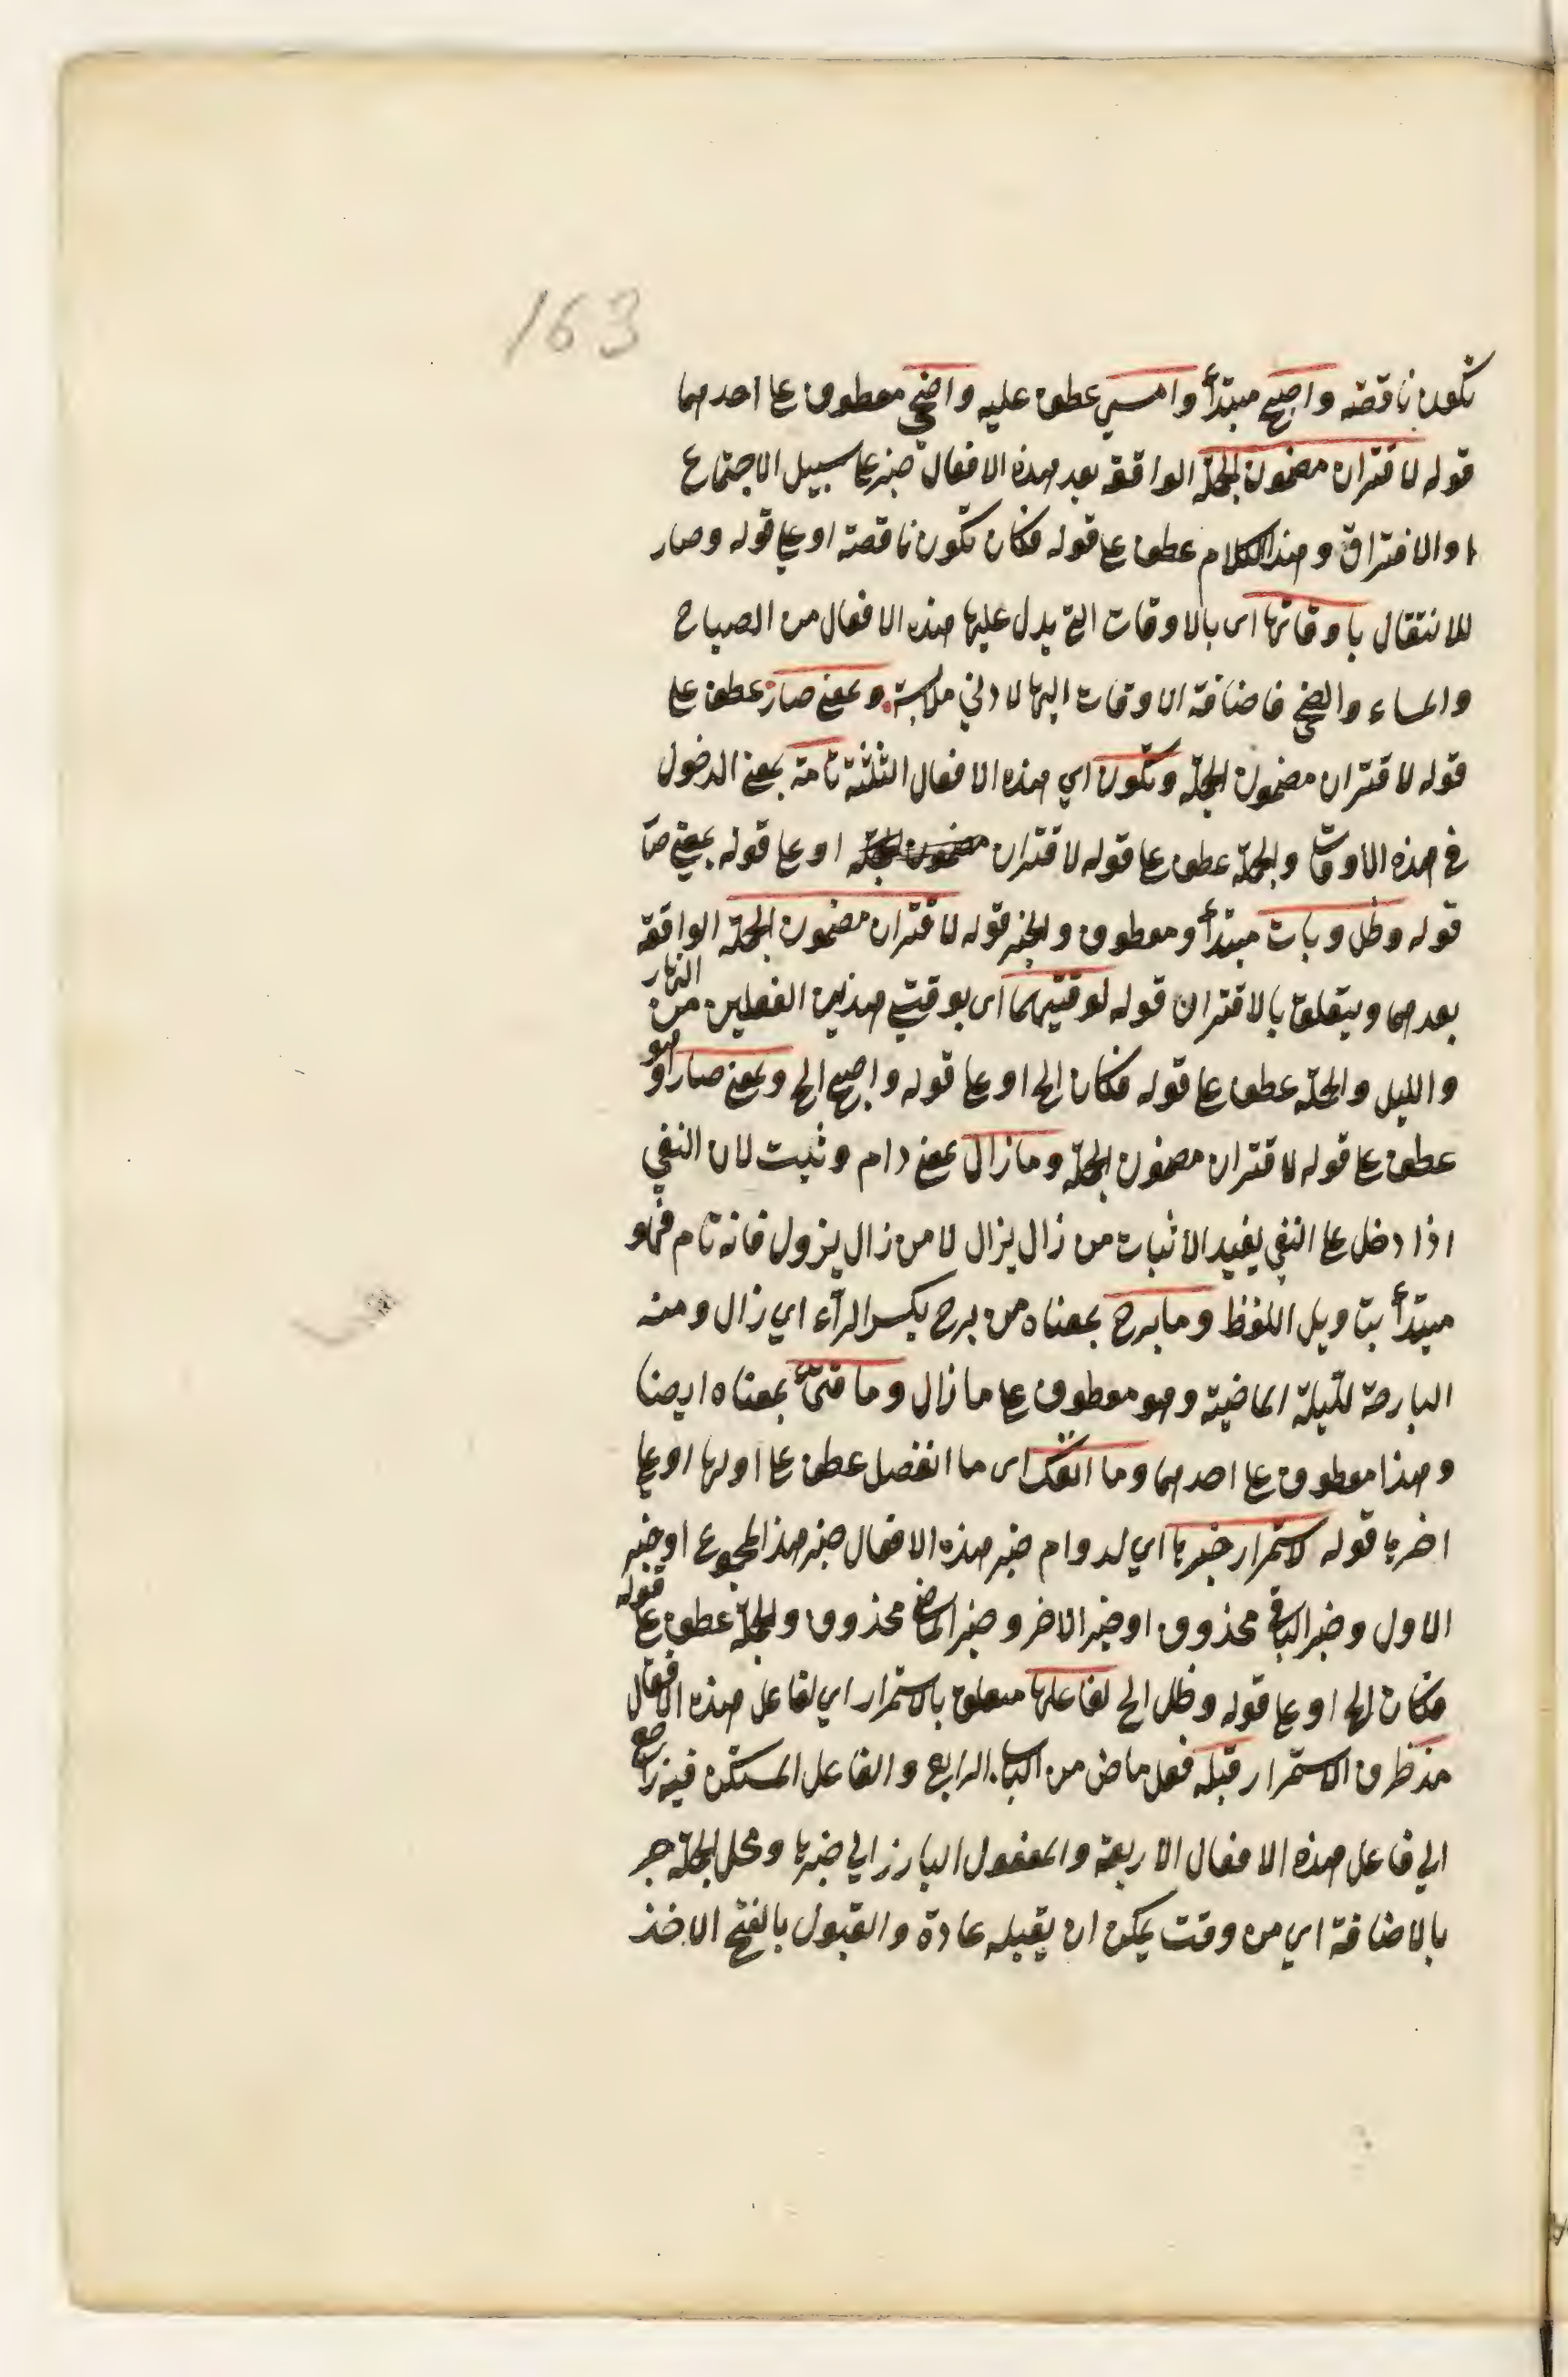 163
تكون ناقصة واصبح مبتدأ وامسى عطف عليه واضحى معطوف على احدهما
قوله لاقتران مضمون الجملة الواقعة بعد هذه الافعال خبر على سبيل الاجتماع
او الافتراق وهذا الكلام عطف على قوله فكان تكون ناقصة او على قوله وصار
للانتقال باوقاتها اى بالاوقات التي يدل عليها هذه الافعال من الصباح
والمساء والضحى فاضافة الاوقات اليها لادني ملابسة وبمعنى صار عطف على
قوله لاقتران مضمون الجملة وتكون اي هذه الافعال الثلثة تامة بمعنى الدخول
في هذه الاوقات والجملة عطف على قوله لاقتران مضمون الجملة او على قوله بمعنى صا
قوله وظل وبات مبتدأ ومعطوف والخبر قوله لاقتران مضمون الجملة الواقعة
بعدهما ويتعلق بالاقتران قوله لوقتيهما اى بوقتي هذين الفعلين من النهار
والليل والجملة عطف على قوله فكان الخ او على قوله واصبح الخ وبمعنى صار وهو
عطف على قوله لاقتران مضمون الجملة ومازال بمعنى دام وثبت لان النفي
اذا دخل على النفي يفيد الاثبات من زال يزال لا من زال يزول فانه تام فهو
مبتدأ بتاويل اللفظ ومابرح بمعناه من برح بكسر الرآء اي زال ومنه
البارحة لليلة الماضية وهو معطوف على مازال وما فتئ بمعناه ايضا
وهذا معطوف على احدهما وما انفك اى ما انفصل عطف على اولها او على
اخرها قوله لاستمرار خبرها اي لدوام خبر هذه الافعال خبر هذا المجموع او خبر
الاول وخبر الباقي محذوف او خبر الاخر وخبر الماضي محذوف والجملة عطف على قوله
فكان الخ او على قوله وظل الخ لفاعلها متعلق بالاستمرار اي لفاعل هذه الافعال
مذ ظرف الاستمرار قبله فعل ماض من الباب الرابع والفاعل المستكن فيه راجع
الي فاعل هذه الافعال الاربعة والمفعول البارز الي خبرها ومحل الجملة جر
بالاضافة اي من وقت يمكن ان يقبله عادة والقبول بالفتح الاخذ